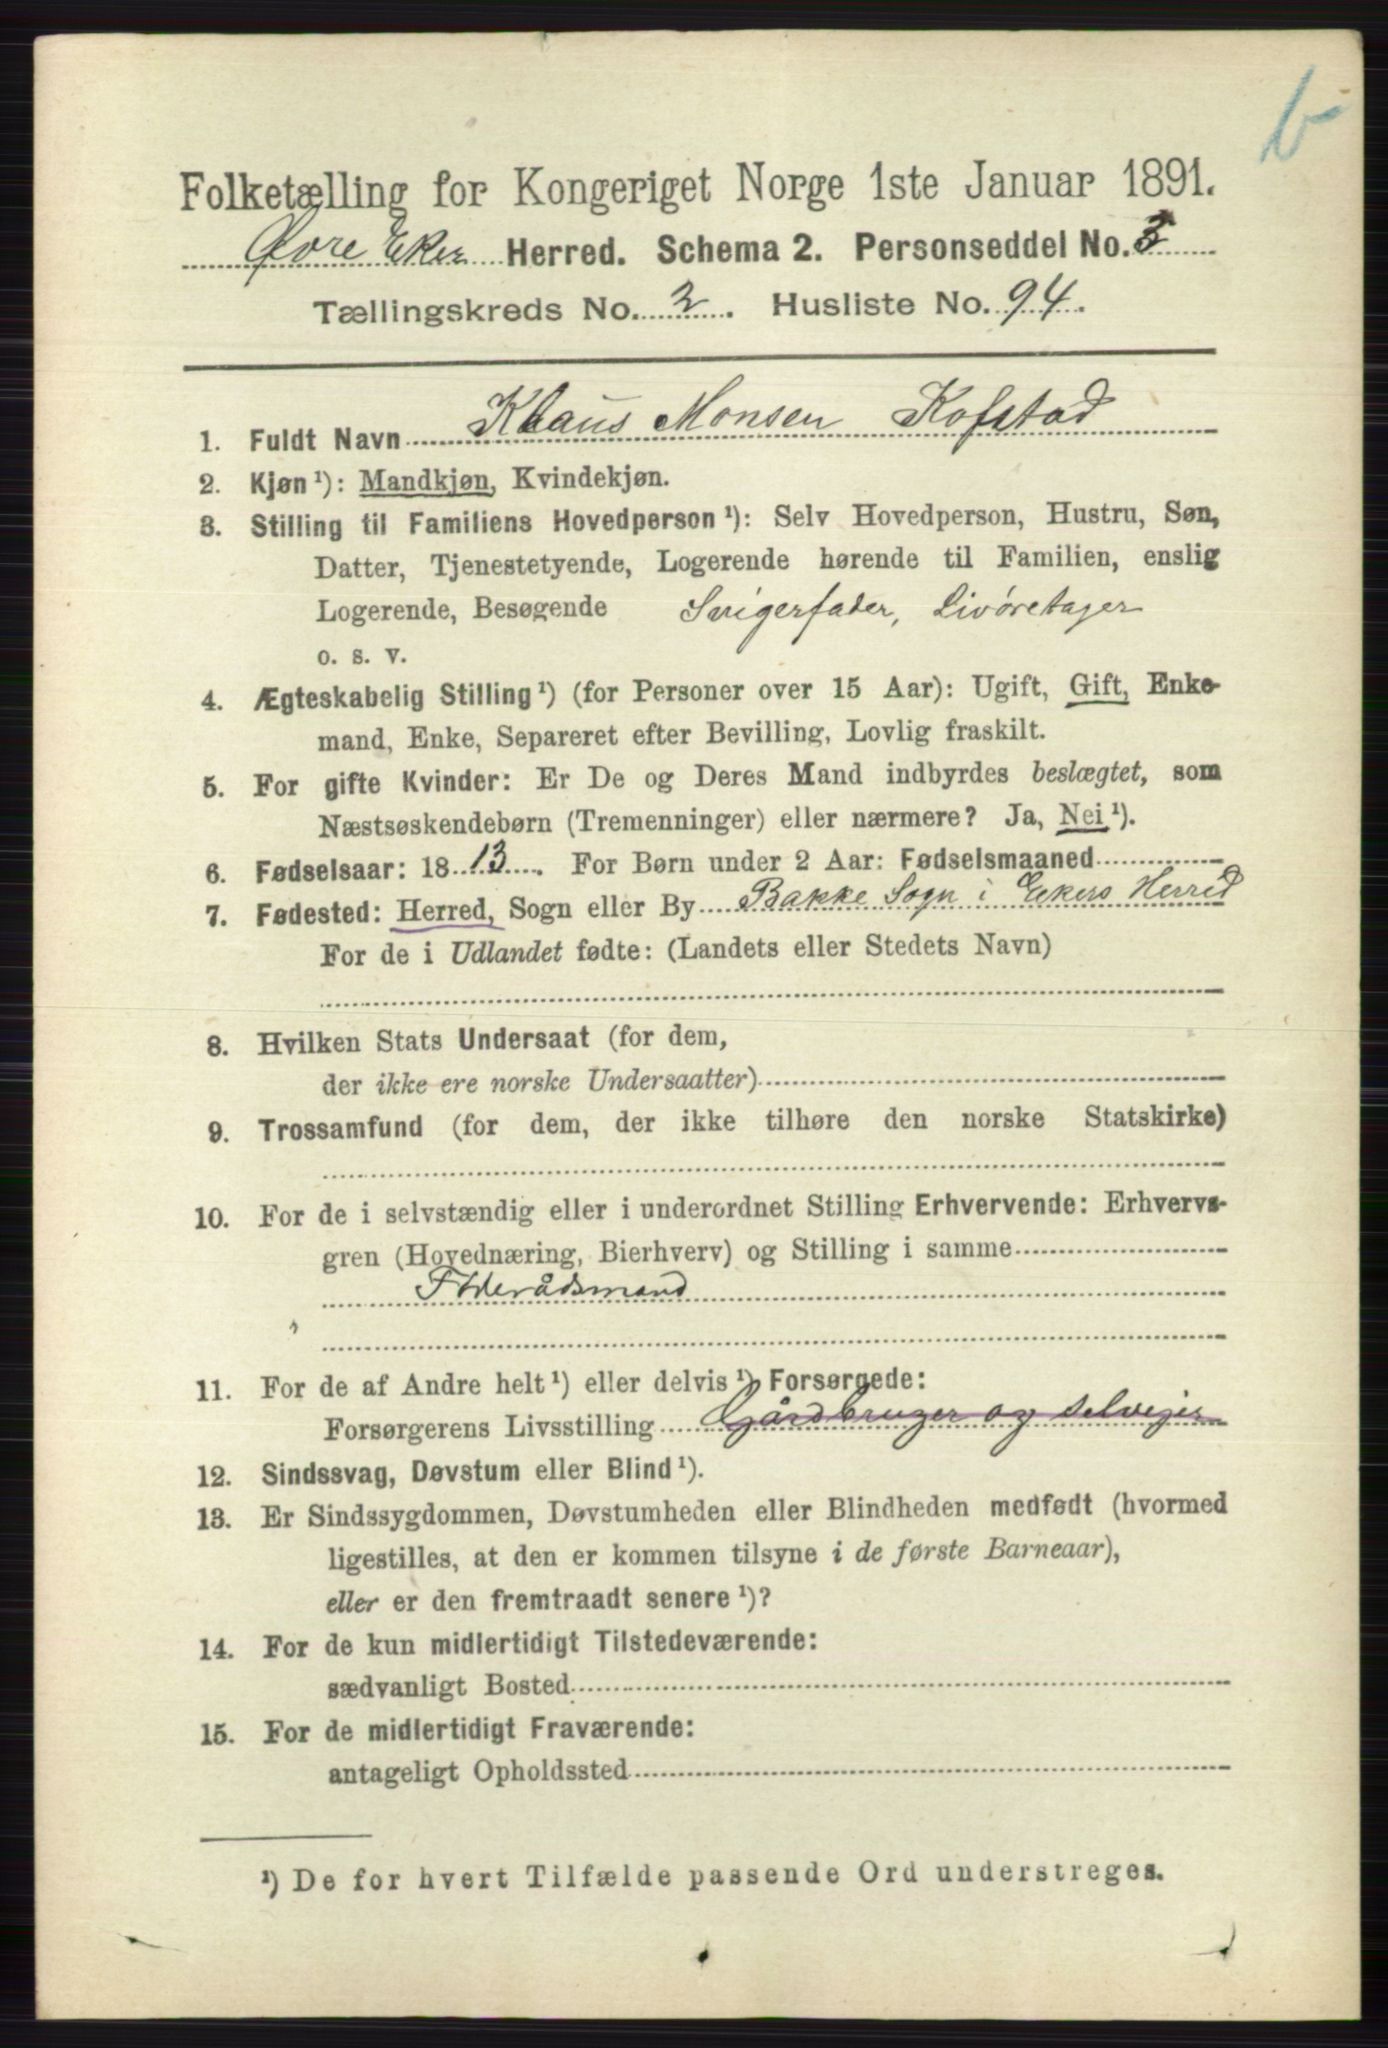 b
Folketælling for Kongeriget Norge 1ste Januar 1891.
Øvre Eker Herred. Schema 2. Personseddel No. 3
Tællingskreds No. 3. Husliste No. 94.
1. Fuldt Navn Klaus Monsen Kofstad
2. Kjøn ¹): Mandkjøn, Kvindekjøn.
3. Stilling til Familiens Hovedperson ¹): Selv Hovedperson, Hustru, Søn,
Datter, Tjenestetyende, Logerende hørende til Familien, enslig
Logerende, Besøgende Svigerfader, Livøretager
o. s. v.
4. Ægteskabelig Stilling ¹) (for Personer over 15 Aar): Ugift, Gift, Enke-
mand, Enke, Separeret efter Bevilling, Lovlig fraskilt.
5. For gifte Kvinder: Er De og Deres Mand indbyrdes beslægtet, som
Næstsøskendebørn (Tremenninger) eller nærmere? Ja, Nei ¹).
6. Fødselsaar: 1813. For Børn under 2 Aar: Fødselsmaaned
7. Fødested: Herred, Sogn eller By Bakke Sogn i Ekers Herred
For de i Udlandet fødte: (Landets eller Stedets Navn)
8. Hvilken Stats Undersaat (for dem,
der ikke ere norske Undersaatter)
9. Trossamfund (for dem, der ikke tilhøre den norske Statskirke)
10. For de i selvstændig eller i underordnet Stilling Erhvervende: Erhvervs-
gren (Hovednæring, Bierhverv) og Stilling i samme
Føderådsmand
11. For de af Andre helt ¹) eller delvis ¹) Forsørgede:
Forsørgerens Livsstilling Gårdbruger og selveier
12. Sindssvag, Døvstum eller Blind ¹).
13. Er Sindssygdommen, Døvstumheden eller Blindheden medfødt (hvormed
ligestilles, at den er kommen tilsyne i de første Barneaar),
eller er den fremtraadt senere ¹)?
14. For de kun midlertidigt Tilstedeværende:
sædvanligt Bosted
15. For de midlertidigt Fraværende:
antageligt Opholdssted
¹) De for hvert Tilfælde passende Ord understreges.